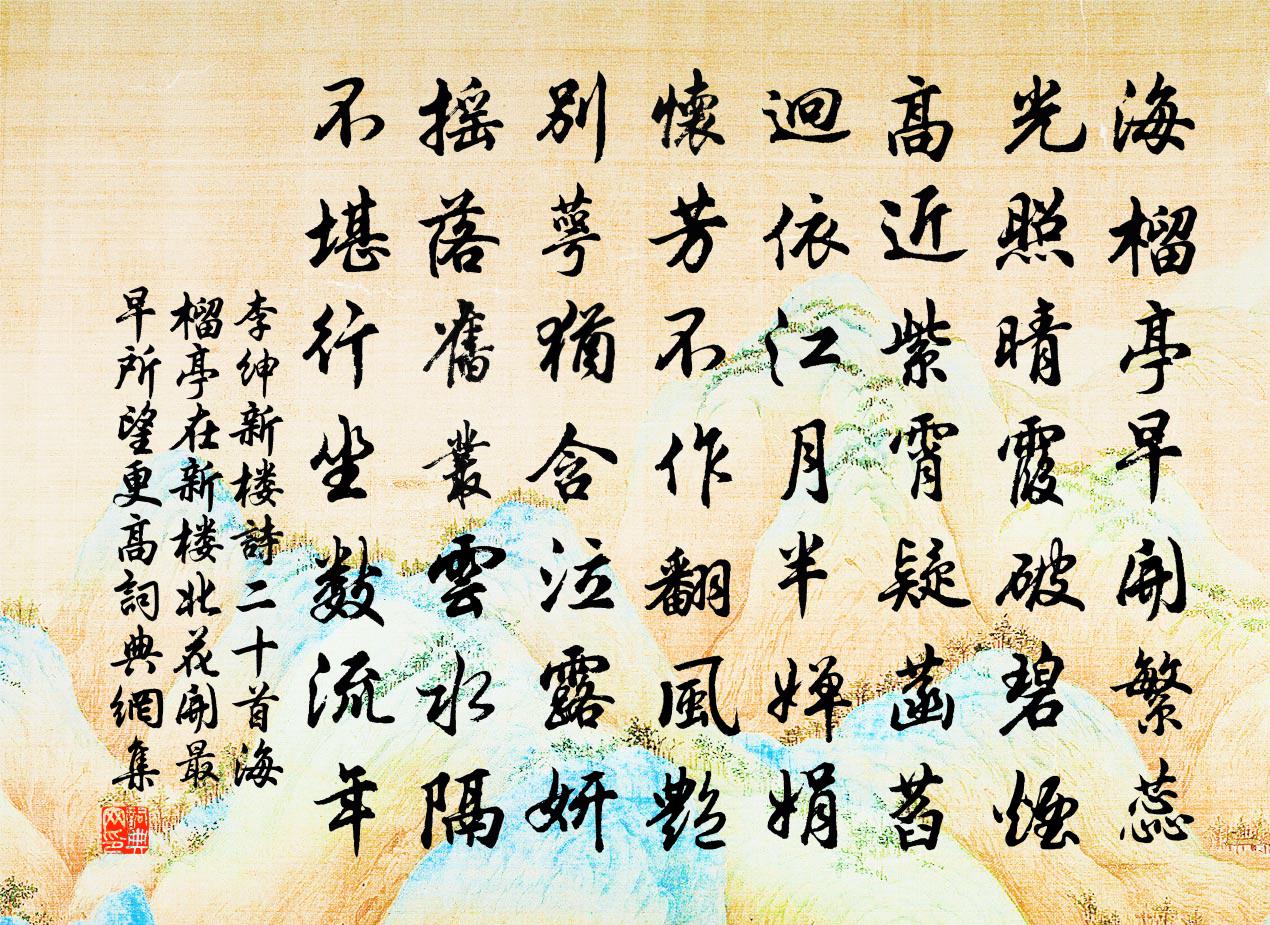 海榴亭早開繁蕊
光照晴霞破碧煙
高近紫霄疑菡萏
迥依江月半嬋娟
懷芳不作翻風艷
別萼猶含泣露妍
搖落舊叢雲水隔
不堪行坐數流年
李紳新楼詩二十首海
榴亭在新楼北花開最
早所望更高詞典網集
詞典網印